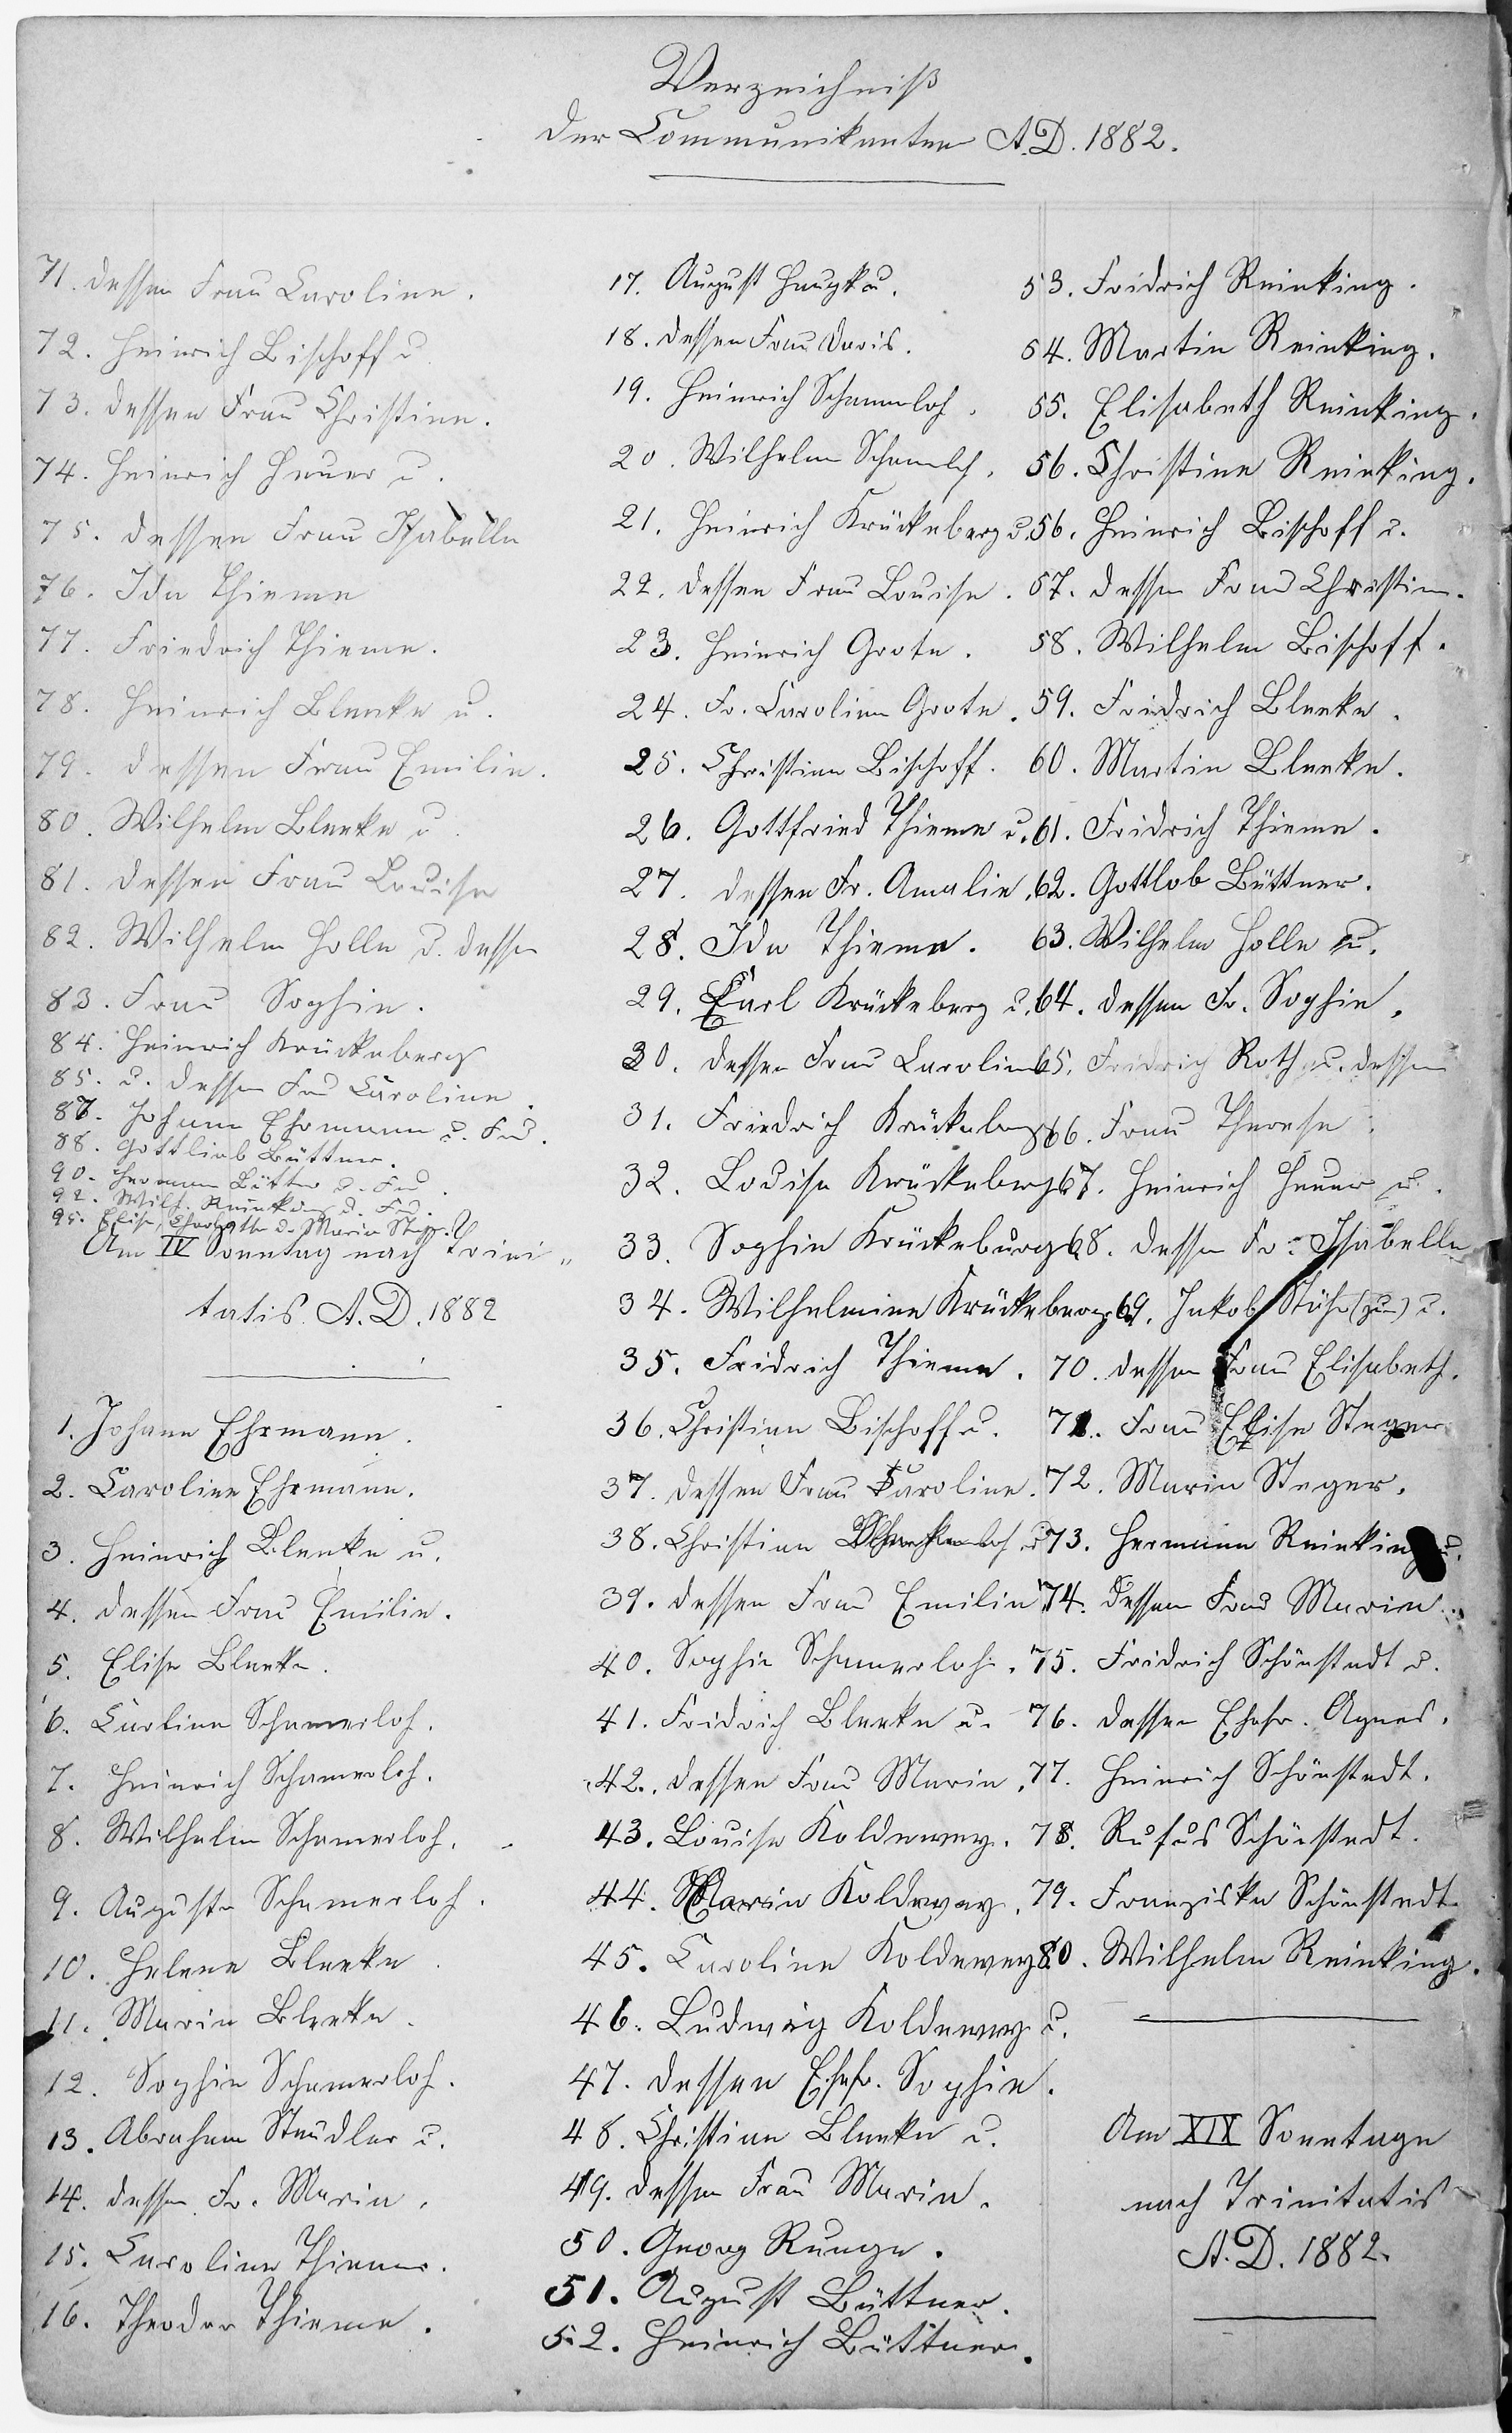 Verzeichniß
der Communikanten A.D. 1882.
71. dessen Frau Caroline.
72. Heinrich Bischoff u.
73. dessen Frau Christine.
74. Heinrich Heuer u.
75. dessen Frau Isabella
76. Ida Thieme
77. Friedrich Thieme.
78. Heinrich Bleeke u.
79. dessen Frau Emilie.
80. Wilhelm Bleeke u.
81. dessen Frau Louise
82. Wilhelm Holle u. dessen
83. Frau Sophie.
84. Heinrich Krückeberg
85. u. dessen Frau Caroline.
87. Johann Ehrmann u. Frau.
88. Gottlieb Büttner.
90. Hermann Büttner u. Frau.
92. Wilh. Reinking u. Frau.
95. Elise, u. Maria
Am IV Sonntag nach Trini"
tatis. A.D. 1882
1. Johann Ehrmann.
2. Caroline Ehrmann.
3. Heinrich Bleeke u.
4. dessen Frau Emilie.
5. Elise Bleeke.
6. Carline Schamerloh.
7. Heinrich Schamerloh.
8. Wilhelm Schamerloh.
9. Auguste Schamerloh.
10. Helene Bleeke.
11. Marie Bleeke.
12. Sophie Schamerloh.
13. Abraham Staudler u.
14. dessen Fr. Marie.
15. Caroline Thieme.
16. Theodor Thieme.
17. August u.
18. dessen Frau Doris.
19. Heinrich Schamerloh.
20. Wilhelm Schamloh.
21. Heinrich Krückeberg u.
22. dessen Frau Louise.
23. Heinrich Grote.
24. Fr. Caroline Grote.
25. Christian Bischoff.
26. Gottfried Thieme u.
27. dessen Fr. Amalie.
28. Ida Thieme.
29. Carl Krückeberg u.
30. dessen Frau Caroline
31. Friedrich Krückeberg
32. Louise Krückeberg
33. Sophie Krückeburg
34. Wilhelmine Krückeberg
35. Fridrich Thieme.
36. Christian Bischoff u.
37. dessen Frau Caroline.
38. Christian u.
39. dessen Frau Emilie
40. Sophie Schamerloh.
41. Fridrich Bleeke u.
42. dessen Frau Marie.
43. Louise Koldewey.
44. Marie Koldewey.
45. Caroline Koldewey
46. Ludwig Koldewey u.
47. dessen Ehefr. Sophie.
48. Christian Bleeke u.
49. dessen Frau Marie.
50. Georg Runge.
51. August Büttner.
52. Heinrich Büttner.
53. Fridrich Reinking.
54. Martin Reinking.
55. Elisabeth Reinking.
56. Christine Reinking.
56. Heinrich Bischoff u.
57. dessen Frau Christine.
58. Wilhelm Bischoff.
59. Fridrich Bleeke.
60. Martin Bleeke.
61. Fridrich Thieme.
62. Gottlob Büttner.
63. Wilhelm Holle u.
64. dessen Fr. Sophie.
65. Fridrich Roth u. dessen
66. Frau Therese.
67. Heinrich Heuer u.
68. dessen Fr. Isabelle
69. Jakob u.
70. dessen Frau Elisabeth.
71. Frau Elise Steger
72. Marie Steger.
73. Hermann Reinking u.
74. dessen Frau Marie.
75. Fridrich Schönstedt u.
76. dessen Ehefr. Agnes.
77. Heinrich Schönstedt.
78. Rufus Schönstedt.
79. Franziska Schönstedt
80. Wilhelm Reinking.
Am XIX Sonntage
nach Trinitatis
A.D. 1882.